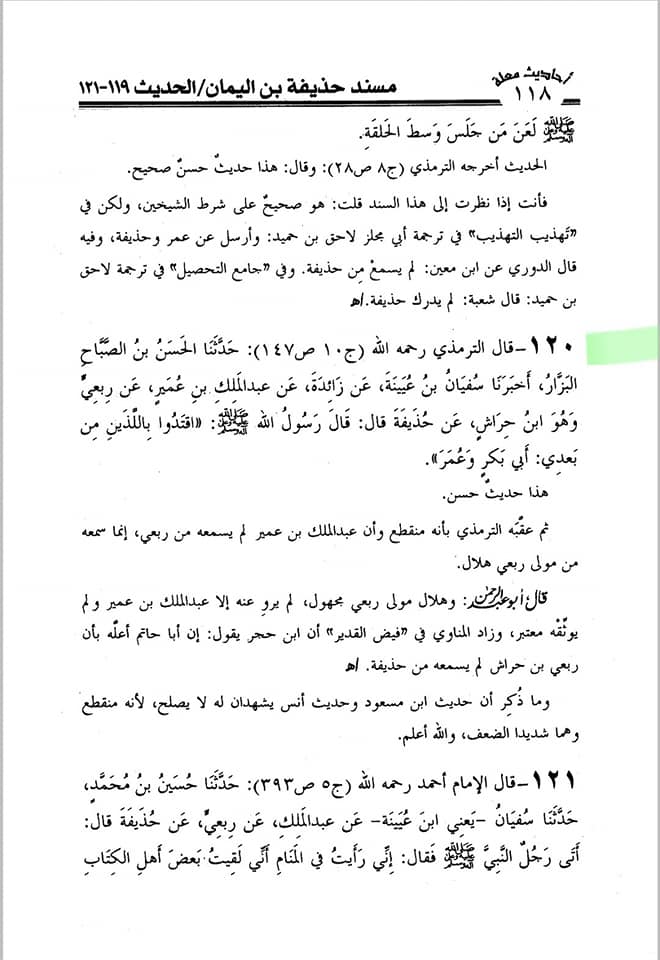 أحاديث معلة
١١٨
مسند حذيفة بن اليمان/الحديث ١١٩-١٢١
ﷺ لَعَنَ مَن جَلَسَ وَسطَ الحَلقَةِ.
الحديث أخرجه الترمذي (ج٨ ص٢٨): وقال: هذا حديثٌ حسنٌ صحيح.
فأنت إذا نظرت إلى هذا السند قلت: هو صحيحٌ على شرط الشيخين، ولكن في
«تَهذيب التهذيب» في ترجمة أبي مجلز لاحق بن حميد: وأرسل عن عمر وحذيفة، وفيه
قال الدوري عن ابن معين: لم يسمعْ مِن حذيفة. وفي «جامع التحصيل» في ترجمة لاحق
بن حميد: قال شعبة: لم يدرك حذيفة.اﻫ
١٢٠-قال الترمذي رحمه الله (ج١٠ ص١٤٧): حَدَّثَنَا الحَسَنُ بنُ الصَّبَّاحِ
البَزَّارُ، أَخبَرَنَا سُفيَانُ بنُ عُيَينَةَ، عَن زَائِدَةَ، عَن عَبدِالمَلِكِ بنِ عُمَيرٍ، عَن رِبعِيٍّ
وَهُوَ ابنُ حِرَاشٍ، عَن حُذَيفَةَ قال: قَالَ رَسُولُ الله ﷺ: «اقتَدُوا بِاللَّذَينِ مِن
بَعدِي: أَبِي بَكرٍ وَعُمَرَ».
هذا حديثٌ حسن.
ثم عقبَّه الترمذي بأنه منقطع وأن عبدالملك بن عمير لم يسمعه من ربعي، إنما سمعه
من مولى ربعي هلال.
قال أبو عبدالرحمن: وهلال مولى ربعي مجهول، لم يروِ عنه إلا عبدالملك بن عمير ولم
يوثِّقْه معتبر، وزاد المناوي في «فيض القدير» أن ابن حجر يقول: إن أبا حاتم أعلَّه بأن
ربعي بن حراش لم يسمعه من حذيفة. اﻫ
وما ذُكِر أن حديث ابن مسعود وحديث أنس يشهدان له لا يصلح، لأنه منقطع
وهما شديدا الضعف، والله أعلم.
١٢١-قال الإمام أحمد رحمه الله (ج٥ ص٣٩٣): حَدَّثَنَا حُسَينُ بنُ مُحَمَّدٍ،
حَدَّثَنَا سُفيَانُ -يَعنِي ابنَ عُيَينَة- عَن عَبدِالمَلِكِ، عَن رِبعِيٍّ، عَن حُذَيفَةَ قال:
أَتَى رَجُلٌ النَّبِيَّ ﷺ فَقال: إِنِّي رَأَيتُ فِي المَنَامِ أَنِّي لَقِيتُ بَعضَ أَهلِ الكِتَابِ